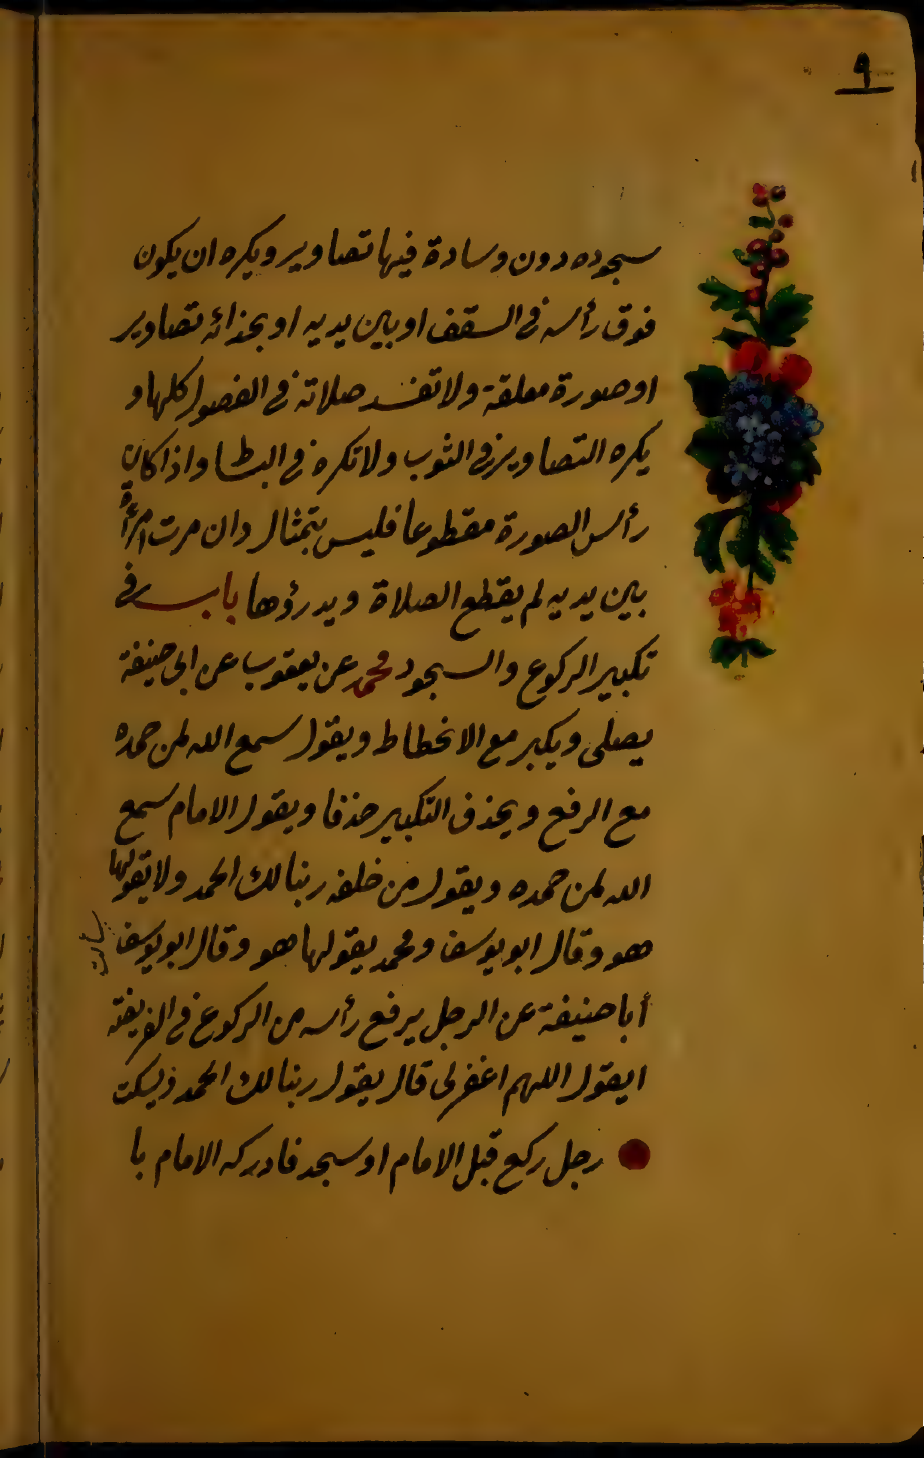 ٩
سجوده دون وسادة فيها تصاوير ويكره ان يكون
فوق رأسه في السقف او بين يديه او بحذائه تصاوير
او صورة معلقة ولا تفسد صلاته في الفصول كلها و
يكره التصاوير في الثوب ولا تكره في البسط واذا كان
رأس الصورة مقطوعا فليس بتمثال وان مرت امرأة
بين يديه لم يقطع الصلاة ويدرؤها باب في
تكبير الركوع والسجود محمد عن يعقوب عن ابى حنيفة
يصلى ويكبر مع الانحطاط ويقول سمع الله لمن حمده
مع الرفع ويحذف التكبير حذفا ويقول الامام سمع
الله لمن حمده ويقول من خلفه ربنا لك الحمد ولا يقولها
هو وقال ابو يوسف ومحمد يقولها هو وقال ابو يوسف
سألت
أبا حنيفة عن الرجل يرفع رأسه من الركوع في الفريضة
ايقول اللهم اغفر لى قال يقول ربنا لك الحمد ويسكت
رجل ركع قبل الامام او سجد فادركه الامام با